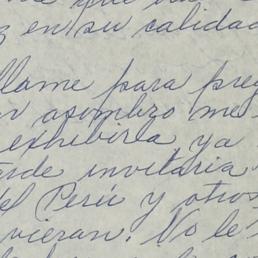 en su calidad
llame para preg
asombro me
exhibiría, ya
arde invitaria
del Perú y otros
vieran. No le